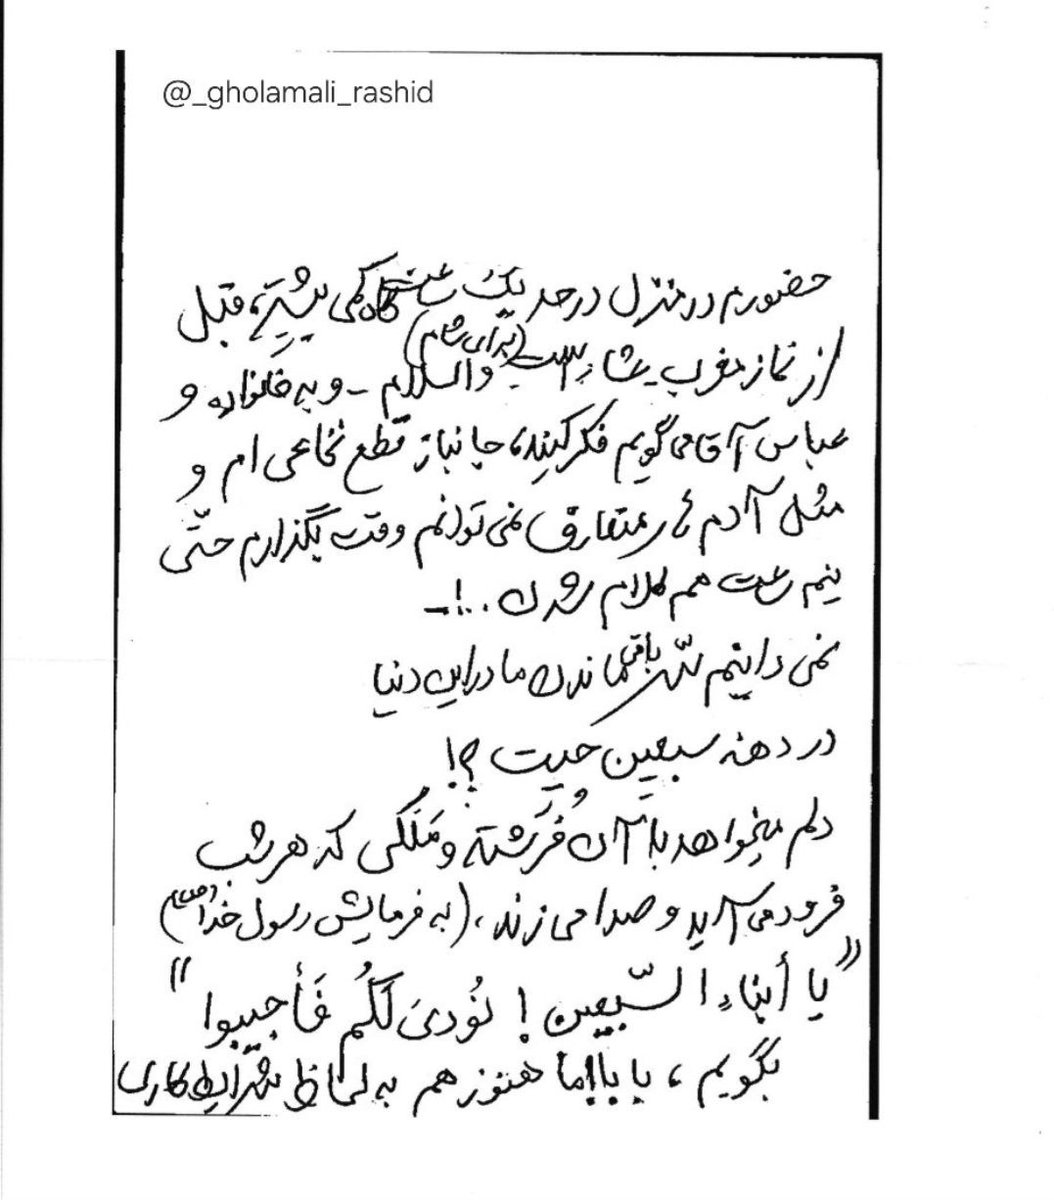 @_gholamali_rashid
حضورم در منزل در حد یک ساعت گاه کمی بیشتر، قبل
از نماز مغرب و عشاء است (برای شام) والسلام - و به خانواده و
عباس آقا می گویم فکر کنید، جانباز قطع نخاعی ام و
مثل آدم های متعارف نمی توانم وقت بگذارم حتّی
نیم ساعت هم کلام شدن ..!_
نمی دانیم سّر باقیماندن ما در این دنیا
در دهه سبعین چیست ؟!
دلم میخواهد با آن فُرَشته و مَلَکی که هر شب
فرود می آید و صدا می زند، (به فرمایش رسول خدا (ص))
"یا أبناءِ السّبعین ! نُودیَ لَکُم فَأجیبوا"
بگویم، بابا! ما هنوز هم به لحاظ شرایط کاری